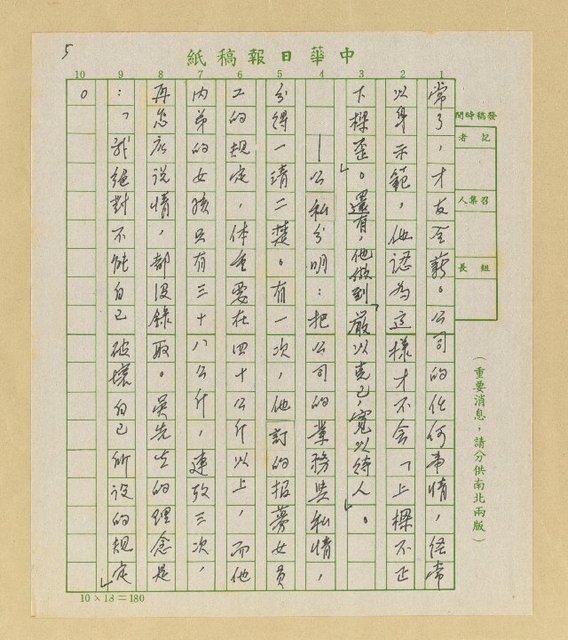 5
中華日報稿紙
發稿時間
記者
召集人
組長
（重要消息，請分供南北兩版）
1 2 3 4 5 6 7 8 9 10
常了，才支全薪。公司的任何事情，經常
以身示範，他認為這樣才不会「上樑不正
下樑歪」。還有，他做到「嚴以克己，寬以待人」。
—公私分明：把公司的業務與私情，
分得一清二楚。有一次，他訂的招募女員
工的規定，体重要在四十公斤以上，而他
内弟的女孩只有三十八公斤，連攷三次，
再怎麼說情，都沒錄取。吳先生的理念是
：「我絕對不能自己破壞自己所設的規定」
。
10×18=180